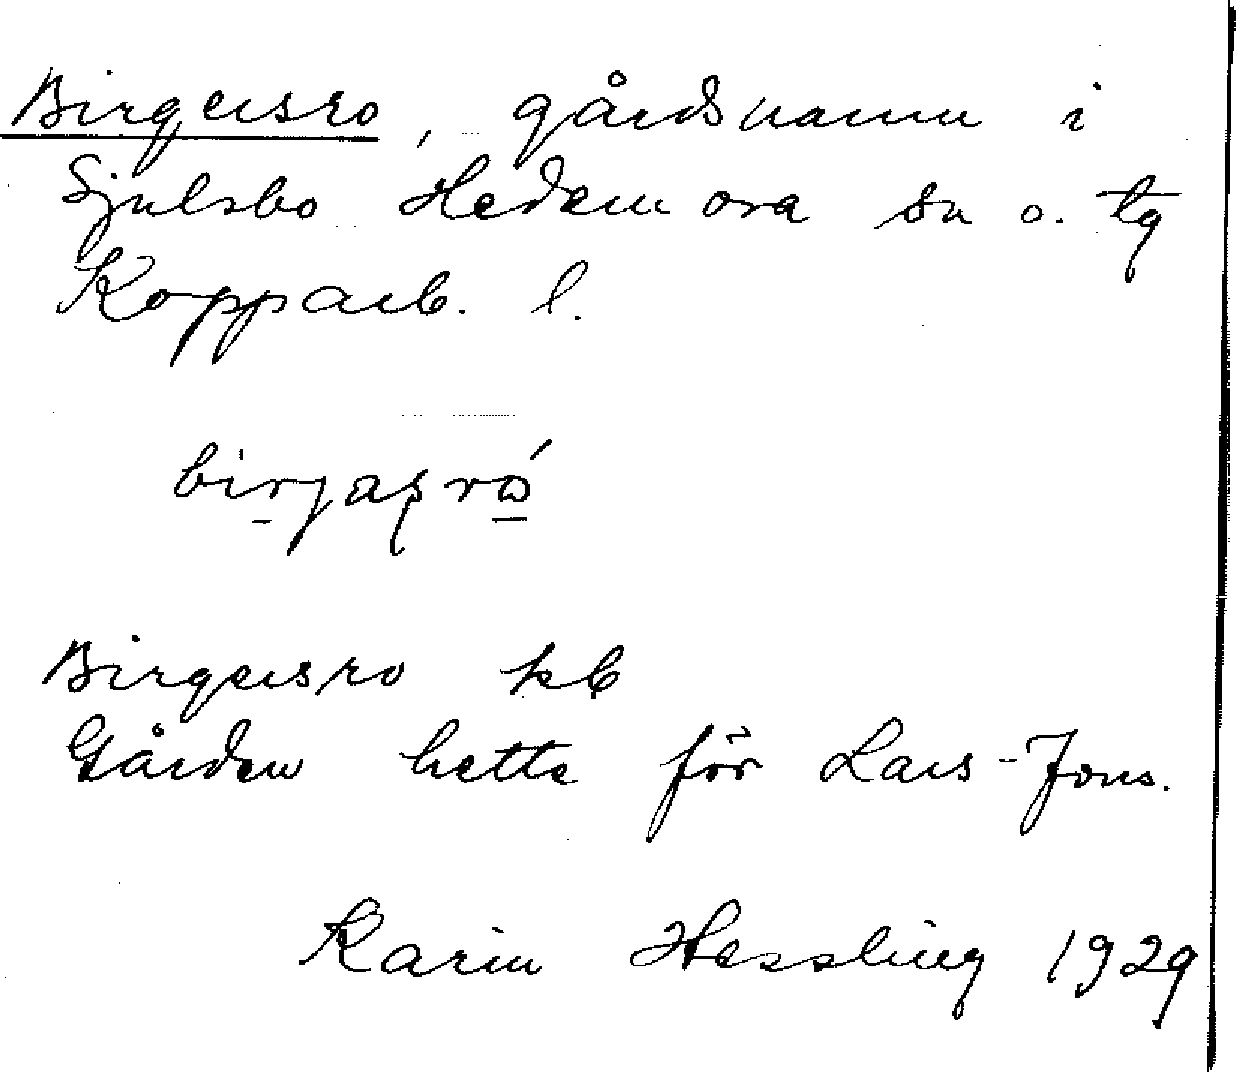 Birgersro, gårdsnamn i
Sjulsbo Hedemora sn o. tg
Kopparb. l.
birjasró
Birgersro kb
Gården hette för Lars-Jons.
Karin Hessling 1929